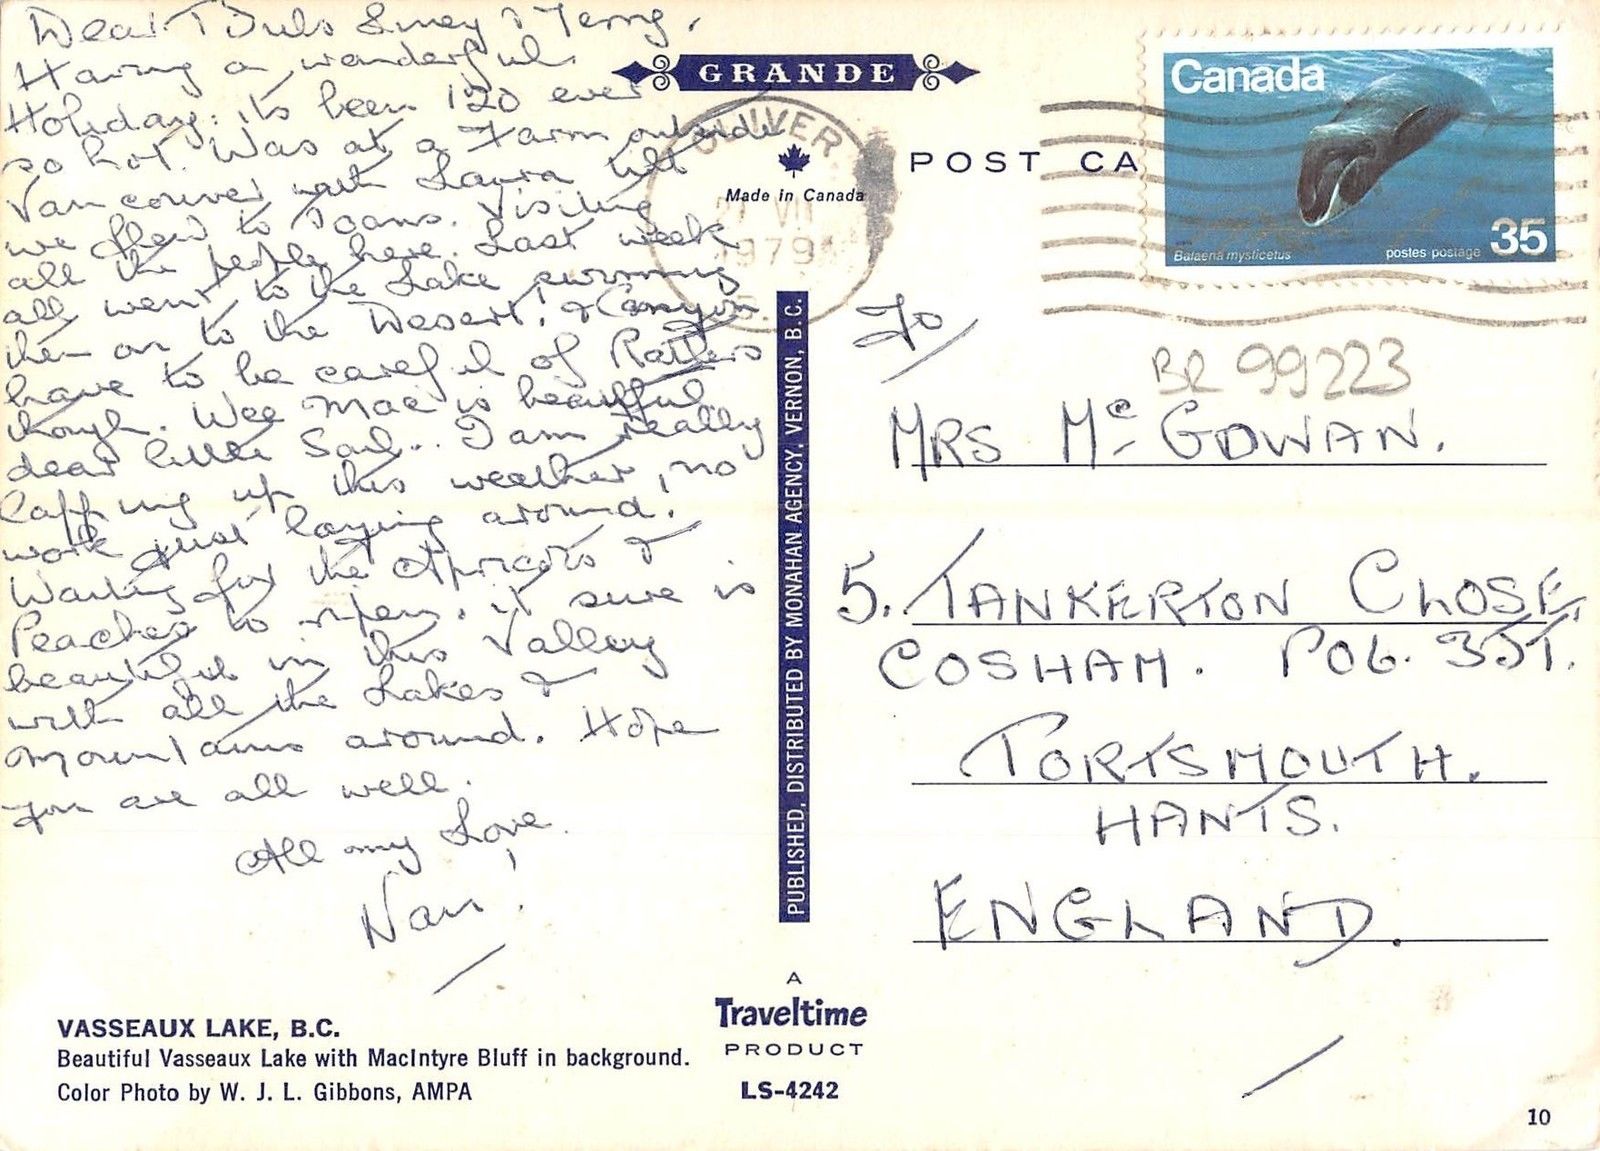 Having a wonderful
Holiday. its been 120 ever
so hot. Was at a Farm outside
Vancouver with Laura till
we flew to Joans. Visiting
all the people here. Last week
all went to the Lake swimming
then on to the Desert! & Canyon
have to be careful of Rattlers
though. Wee Mac is beautiful
dear little Soul.. I am really
lapping up this weather, no
work just laying around.
Waiting for the Apricots &
Peaches to ripen. it sure is
beautiful in this Valley
with all the Lakes &
Mountains around. Hope
you are all well.
All my Love.
Nan.
VASSEAUX LAKE, B.C.
Beautiful Vasseaux Lake with MacIntyre Bluff in background.
Color Photo by W. J. L. Gibbons, AMPA
GRANDE
POST CA
Made in Canada
OLIVER
VII
1979
PUBLISHED, DISTRIBUTED BY MONAHAN AGENCY, VERNON, B.C.
A
Traveltime
PRODUCT
LS-4242
Canada
Balaena mysticetus
postes postage
35
To
BR 99223
MRS McGOWAN.
5. TANKERTON CLOSE,
COSHAM. PO6. 3JT.
PORTSMOUTH.
HANTS.
ENGLAND.
10